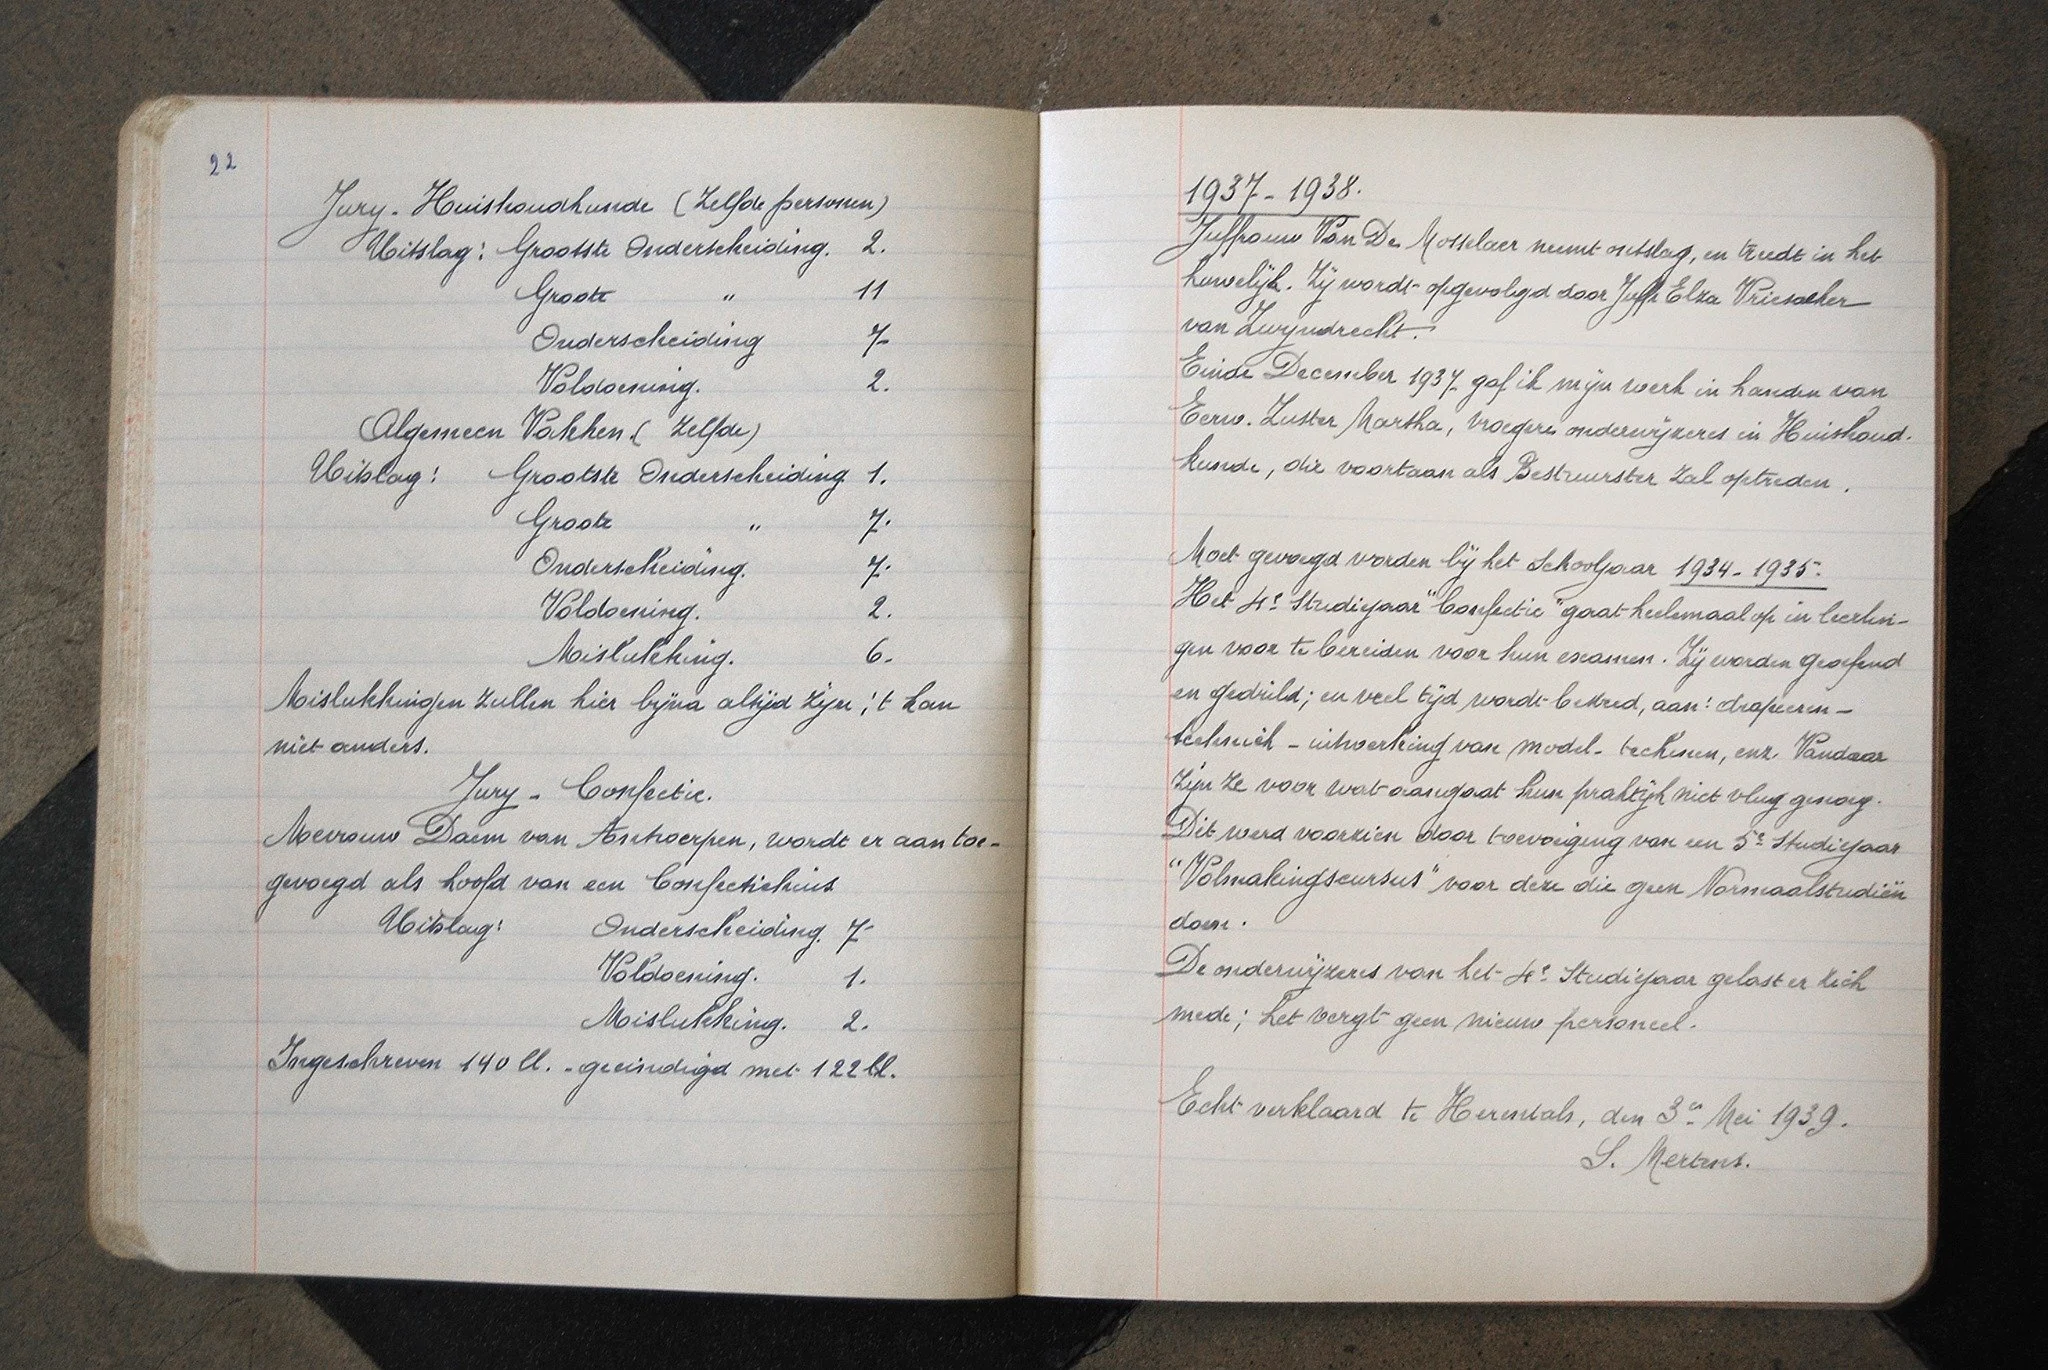 22
Jury - Huishoudkunde (Zelfde personen)
Uitslag: Grootste Onderscheiding. 2.
Groote " 11
Onderscheiding 7
Voldoening. 2.
Algemeen Vakken. (Zelfde)
Uitslag: Grootste Onderscheiding 1.
Groote " 7.
Onderscheiding. 7.
Voldoening. 2.
Mislukking. 6.
Mislukkingen zullen hier bijna altijd zijn; 't kan
niet anders.
Jury - Confectie.
Mevrouw Daem van Antwerpen, wordt er aan toe-
gevoegd als hoofd van een Confectiehuis
Uitslag: Onderscheiding. 7
Voldoening. 1.
Mislukking. 2.
Ingeschreven 140 ll. - geëindigd met 122 ll.
1937 - 1938.
Juffrouw Van De Mosselaer neemt ontslag, en treedt in het
huwelijk. Zij wordt opgevolgd door Juff Elza
van Zwijndrecht.
Einde December 1937 gaf ik mijn werk in handen van
Eerw. Zuster Martha, vroegere onderwijzeres in Huishoud-
kunde, die voortaan als Bestuurster zal optreden.
Moet gevoegd worden bij het Schooljaar 1934 - 1935.
Het 4e Studiejaar "Confectie" gaat heelemaal op in leerlin-
gen voor te bereiden voor hun examen. Zij worden geoefend
en gedrild; en veel tijd wordt besteed, aan: drapeeren -
techniek - uitwerking van model - teekenen, enz. Vandaar
zijn ze voor wat aangaat hun praktijk niet vlug genoeg.
Dit werd voorzien door toevoeging van een 5e Studiejaar
"Volmakingscursus" voor deze die geen Normaalstudiën
doen.
De onderwijzeres van het 4e Studiejaar gelast er zich
mede; het vergt geen nieuw personeel.
Echt verklaard te Herentals, den 3en Mei 1939.
S. Mertens.